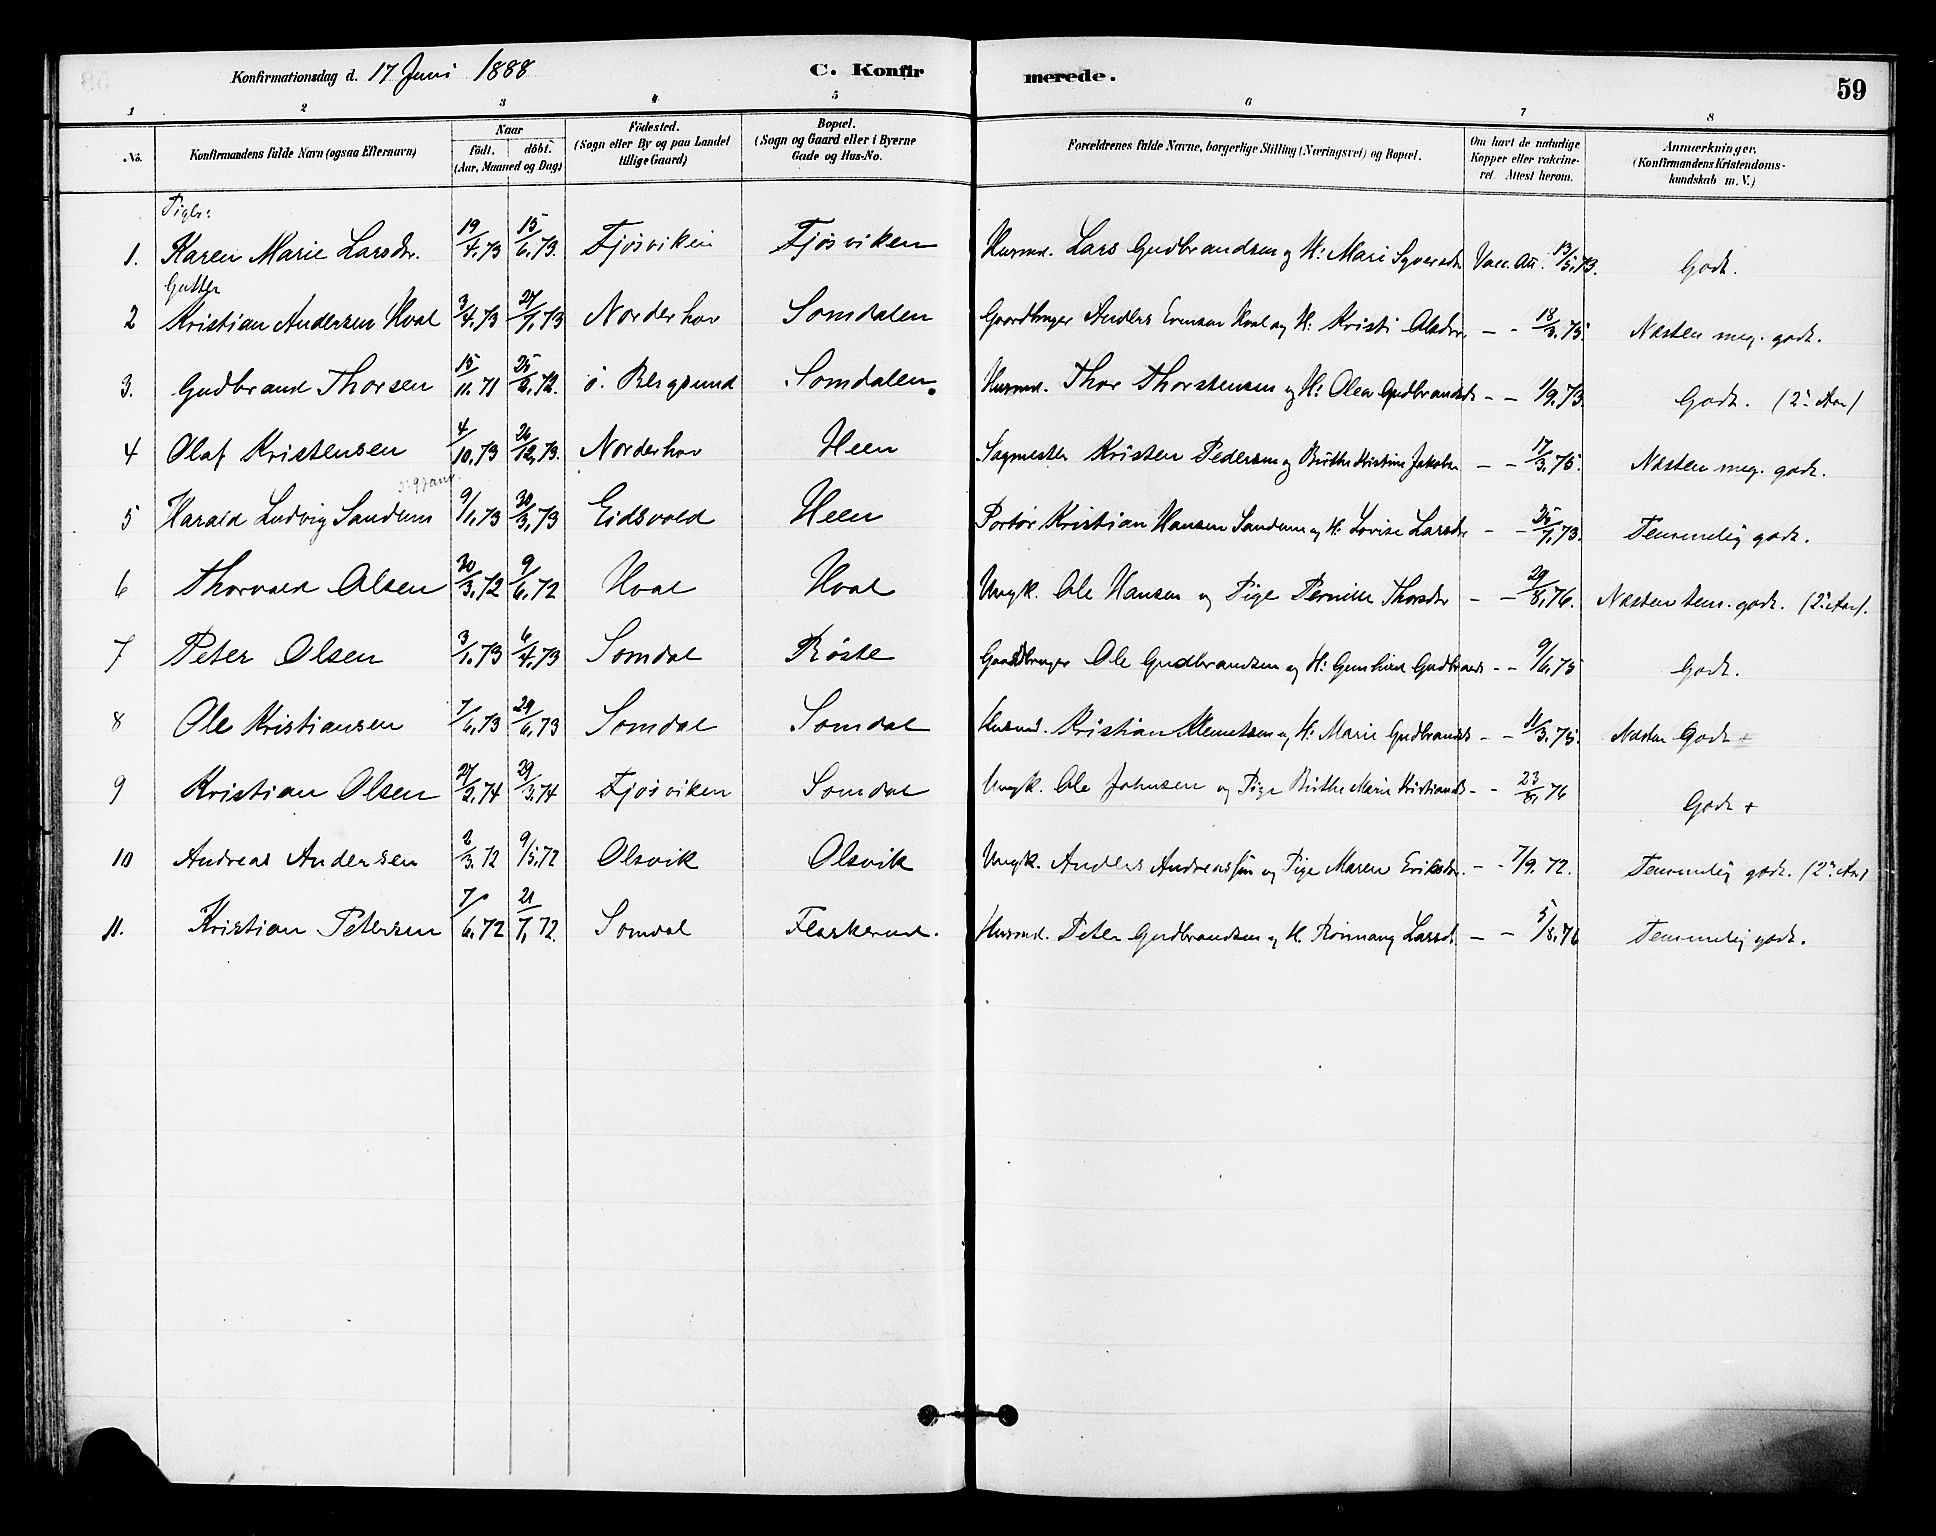 Konfirmationsdag d. 17 Juni 1888 C. Konfirmerede. 59
1 2 3 4 5 6 7 8
No. Konfirmandens fulde Navn (ogsaa Efternavn) Naar födt. döbt. (Aar, Maaned og Dag) Födested. (Sogn eller By og paa Landet tillige Gaard) Bopæl. (Sogn og Gaard eller i Byerne Gade og Hus-No. Forældrenes fulde Navne, borgerlige Stilling (Næringsvei) og Bopæl. Om havt de naturlige Kopper eller vakcineret. Attest herom. Anmærkninger. (Konfirmandens Kristendomskundskab m. V.)
Piger:
1. Karen Marie Larsdr. 19/4.73 15/6.73. Fjøsviken Fjøsviken Husmd. Lars Gudbrandsen og H: Mari Syversdr Vacc. Att. 13/5.73. Godt.
Gutter
2 Kristian Andersen Hval 3/4.73 27/7.73 Norderhov Somdalen Gaardbruger Anders Evensen Hval og H: Kristi Olsdr. - - 18/3.75. Næsten meg. godt.
3. Gudbrand Thorsen 15/11.71 25/2.72. ö. Bergsund Somdalen. Husmd. Thor Thorstensen og H: Olea Gudbrandsdr - - 1/9.73. Godt. (2den Aar)
4 Olaf Kristensen 4/10.73 26/12.73. Norderhov Heen Sagmester Kristen Pedersen og Birthe Kristine Jakobs - - 17/3.75. Næsten meg. godt.
5 Harald Ludvig Sandum 9/1.73 30/3.73 Eidsvold Heen Portør Kristian Hansen Sandum og H. Lovise Larsdr - - 25/7.73. Temmelig godt.
6 Thorvald Olsen 30/3.72 9/6.72 Hval Hval Ungk. Ole Hansen og Pige Pernille Thorsdr - - 29/8.76. Næsten tem. godt. (2den Aar).
7 Peter Olsen 3/1.73 6/4.73 Somdal Røste Gaardbruger Ole Gudbrandsen og H: Gunhild Gudbrands - - 9/6.75 Godt.
8 Ole Kristiansen 7/6.73 29/6.73 Somdal Somdal Husmd. Kristian Klemetsen og H: Marie Gudbrands - - 11/3.75. Næsten Godt +
9 Kristian Olsen 27/2.74 29/3.74 Fjøsviken Somdal Ungk. Ole Johnsen og Pige Birthe Marie Kristiansd - - 23/8.76 Godt +
10 Andreas Andersen 2/3.72 9/5.72 Olsvik Olsvik Ungk. Anders Andreassen og Pige Maren Eriksdr. - - 7/9.72. Temmelig godt. (2den Aar)
11. Kristian Petersen 7/6.72 21/7.72. Somdal Flaskerud. Husmd. Peter Gudbrandsen og H. Rönnaug Larsdr - - 5/8.76 Temmelig godt.